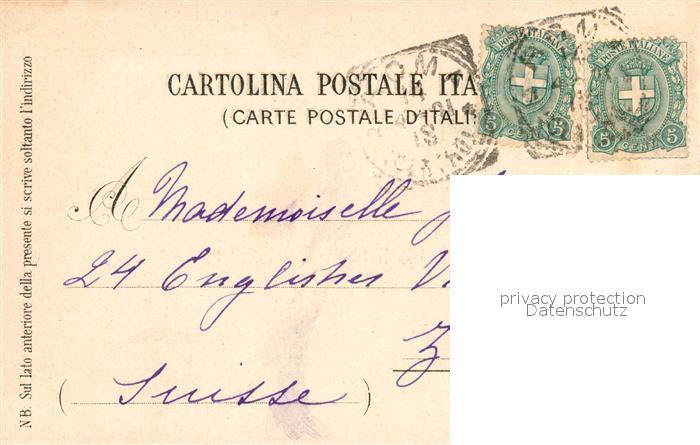 CARTOLINA POSTALE ITA
(CARTE POSTALE D'ITALI
POSTE ITALIANE
5 CENT 5
POSTE ITALIANE
5 CENT 5
A Mademoiselle
24 Englisches
Z
(Suisse)
privacy protection
Datenschutz
NB. Sul lato anteriore della presente si scrive soltanto l'indirizzo